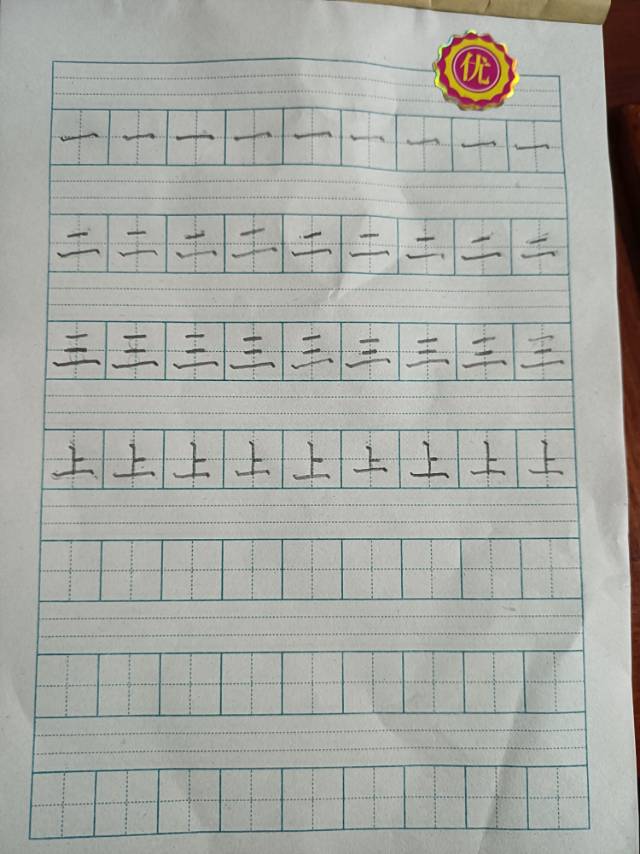 优
一 一 一 一 一 一 一 一 一
二 二 二 二 二 二 二 二 二
三 三 三 三 三 三 三 三 三
上 上 上 上 上 上 上 上 上